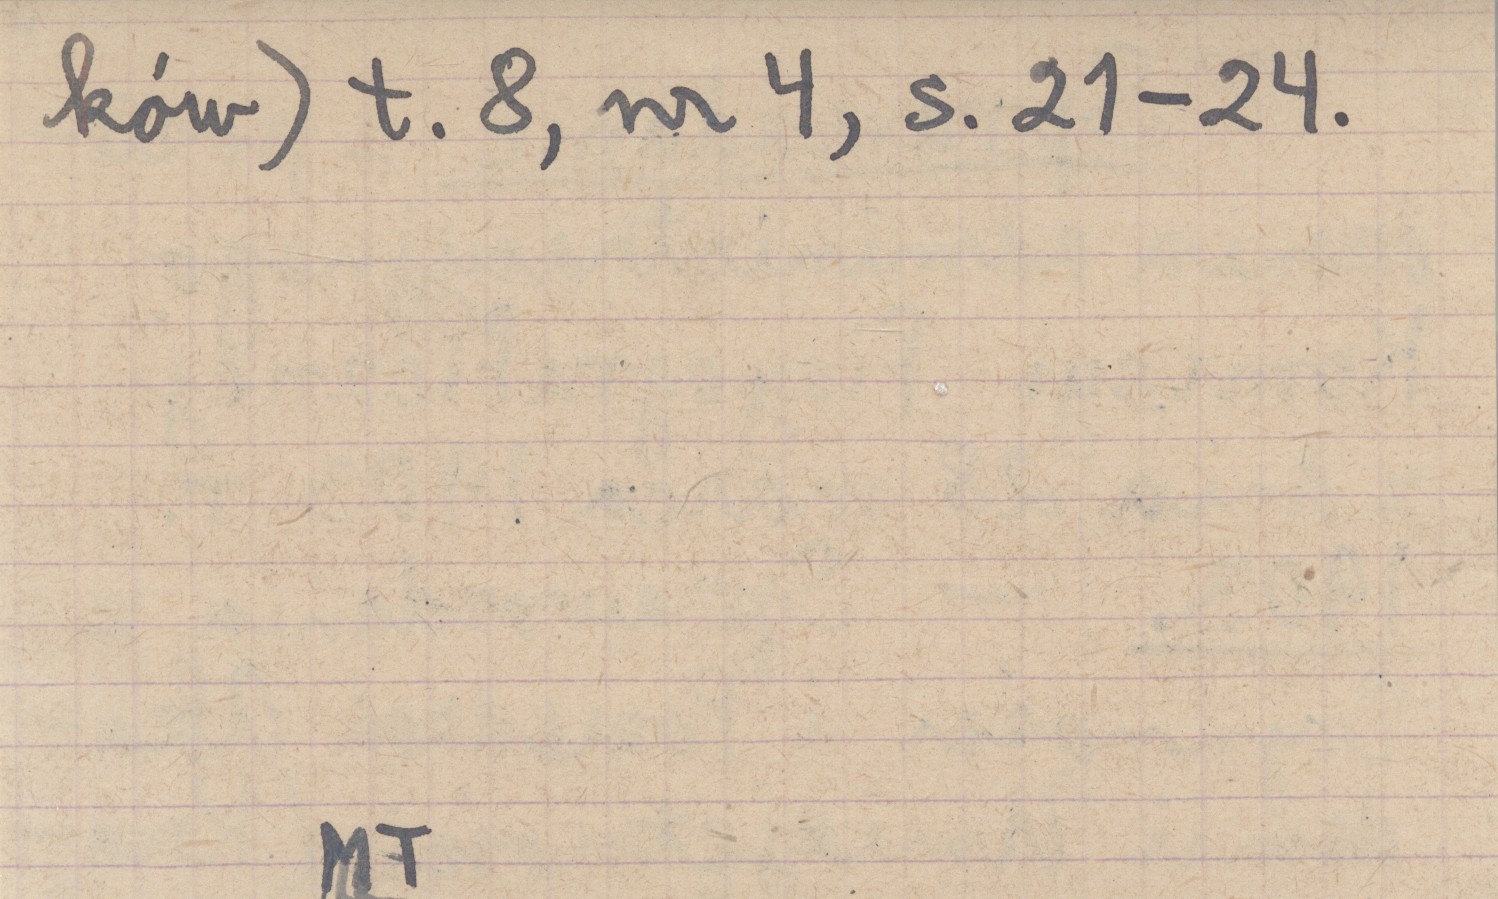 ków) t. 8, nr 4, s. 21-24.
MT